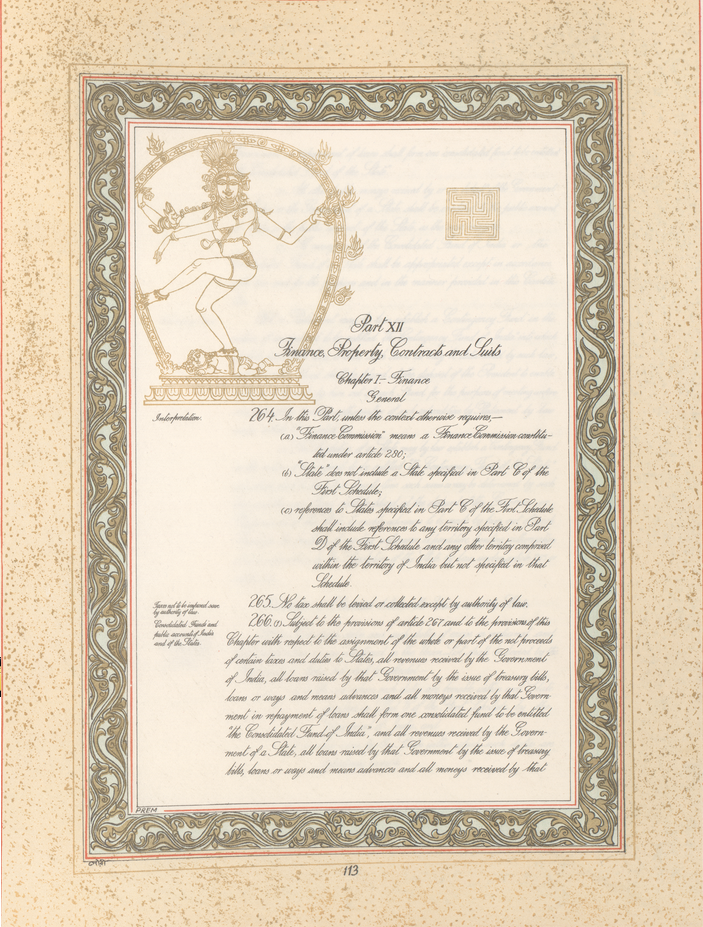 Part XII
Finance, Property, Contracts and Suits
Chapter I.— Finance
General
Interpretation.
264. In this Part, unless the context otherwise requires,—
(a) "Finance Commission" means a Finance Commission constitu-
ted under article 280;
(b) "State" does not include a State specified in Part C of the
First Schedule;
(c) references to States specified in Part C of the First Schedule
shall include references to any territory specified in Part
D of the First Schedule and any other territory comprised
within the territory of India but not specified in that
Schedule.
Taxes not to be imposed save
by authority of law.
265. No tax shall be levied or collected except by authority of law.
Consolidated Funds and
public accounts of India
and of the States.
266. (1) Subject to the provisions of article 267 and to the provisions of this
Chapter with respect to the assignment of the whole or part of the net proceeds
of certain taxes and duties to States, all revenues received by the Government
of India, all loans raised by that Government by the issue of treasury bills,
loans or ways and means advances and all moneys received by that Govern-
ment in repayment of loans shall form one consolidated fund to be entitled
"the Consolidated Fund of India", and all revenues received by the Govern-
ment of a State, all loans raised by that Government by the issue of treasury
bills, loans or ways and means advances and all moneys received by that
PREM
113